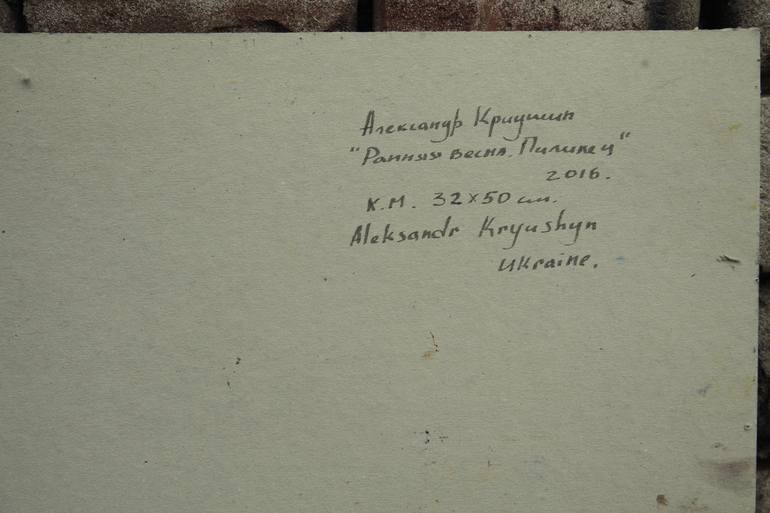 Александр Криушин
"Ранняя весна. Пилипец"
2016.
К.М. 32x50 см.
Aleksandr Kryushyn
Ukraine.